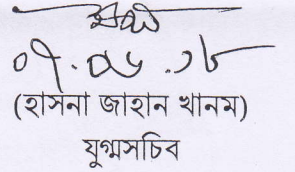 ০৭.০৮.১৮
(হাসনা জাহান খানম)
যুগ্মসচিব